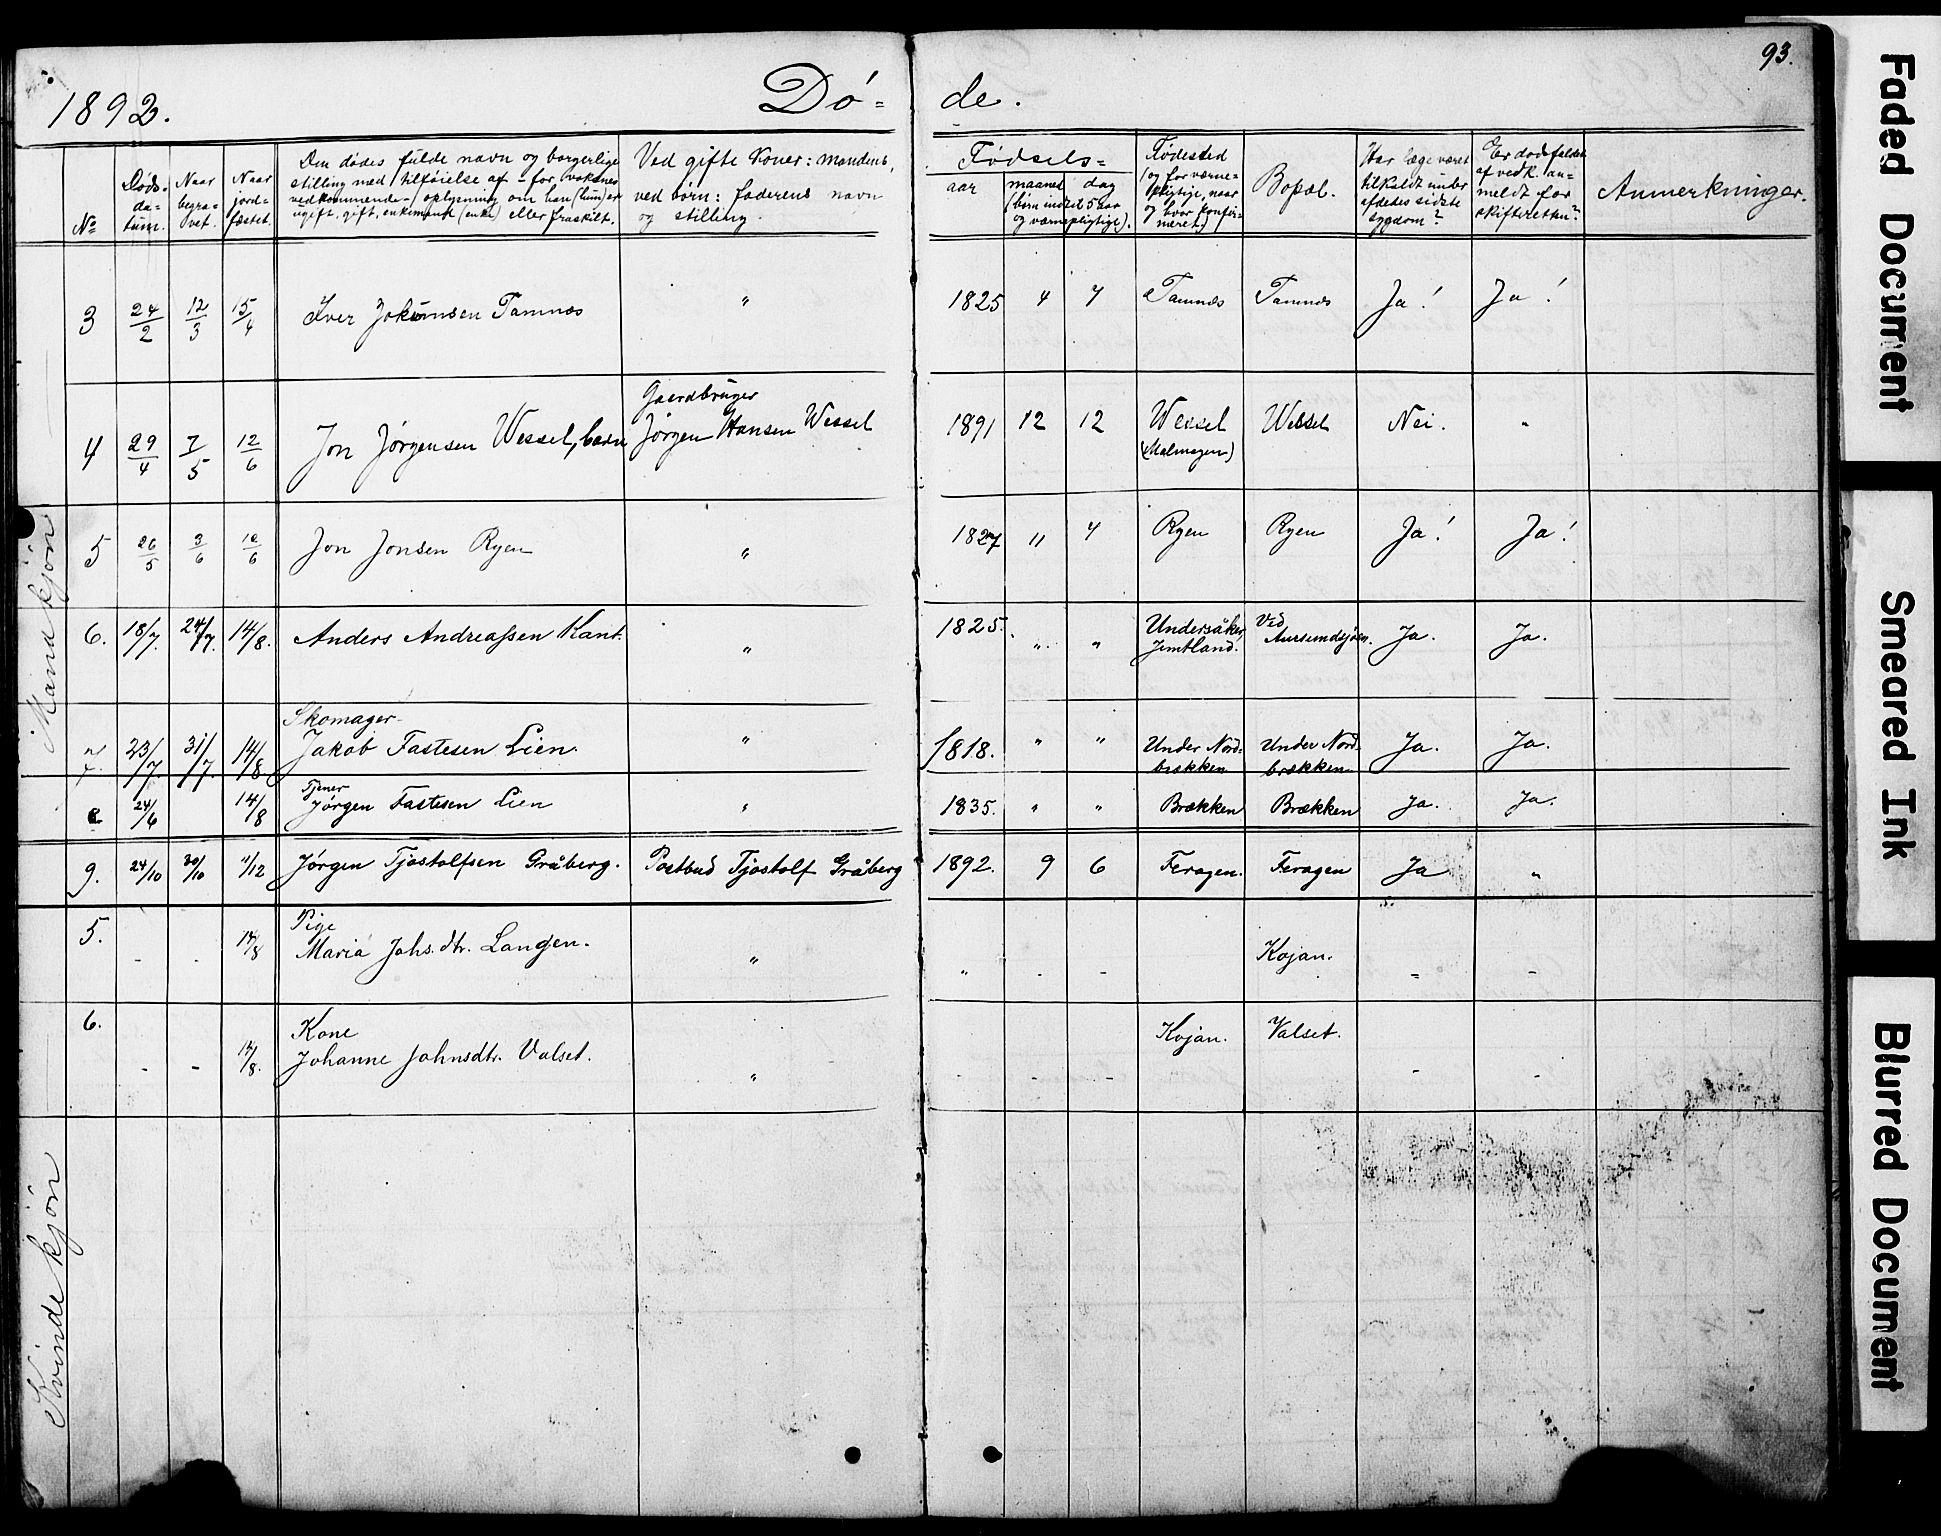 93.
1892. Dö = de.
No
Döds-
da-
tum.
Naar
begra-
vet.
Naar
jord-
fæstet.
Den dödes fulde navn og borgerlige
stilling med tilföielse af - for voksnes
vedkommende - oplysning om han (hun) er
ugift, gift, enkemand (enke) eller fraskilt.
Ved gifte Koner: mandens,
ved börn: faderens navn
og stilling.
Födsels=
aar
maaned dag
(börn indtil 5 aar
og værnepligtige).
Födested
(og for værne-
pligtige, naar
og hvor konfir-
meret)
Bopæl.
Har læge været
tilkaldt under
afdødes sidste
sygdom?
Er dödsfaldet
af vedk. an-
meldt for
skifteretten?
Anmerkninger.
Mandkjön
3 24/2 12/3 15/4 Iver Tamnes " 1825 4 7 Tamnes Tamnes Ja! Ja!
4 29/4 7/5 12/6 Jon Jörgensen Wessel, barn Gaardbruger
Jörgen Hansen Wessel 1891 12 12 Wessel
(Malmagen) Wessel Nei. "
5 26/5 3/6 12/6 Jon Jonsen Ryen " 1827 11 4 Ryen Ryen Ja! Ja!
6. 18/7. 24/7. 14/8. Anders Andreassen Kant. " 1825. " " Undersåker,
Jemtland. Ved
Aursundsjöen. Ja. Ja.
7. 23/7. 31/7. 14/8 Skomager
Jakob Fastesen Lien. " 1818. " " Under Nord-
brækken Under Nord-
brækken Ja. Ja.
24/6 14/8 Tjener
Jörgen Fastesen Lien " 1835. " " Brækken Brækken Ja. Ja.
9. 24/10 30/10 11/12 Jörgen Tjostolfsen Gråberg. Postbud Tjostolf Gråberg 1892. 9 6 Feragen. Feragen Ja "
Kvindekjön
5. - - 14/8 Pige
Maria Johs.dtr. Langen. " " - - Kojan. - -
6. - - 14/8. Kone
Johanne Johnsdtr. Valset. " - - - Kojan. Valset. - -
Faded Document
Smeared Ink
Blurred Document